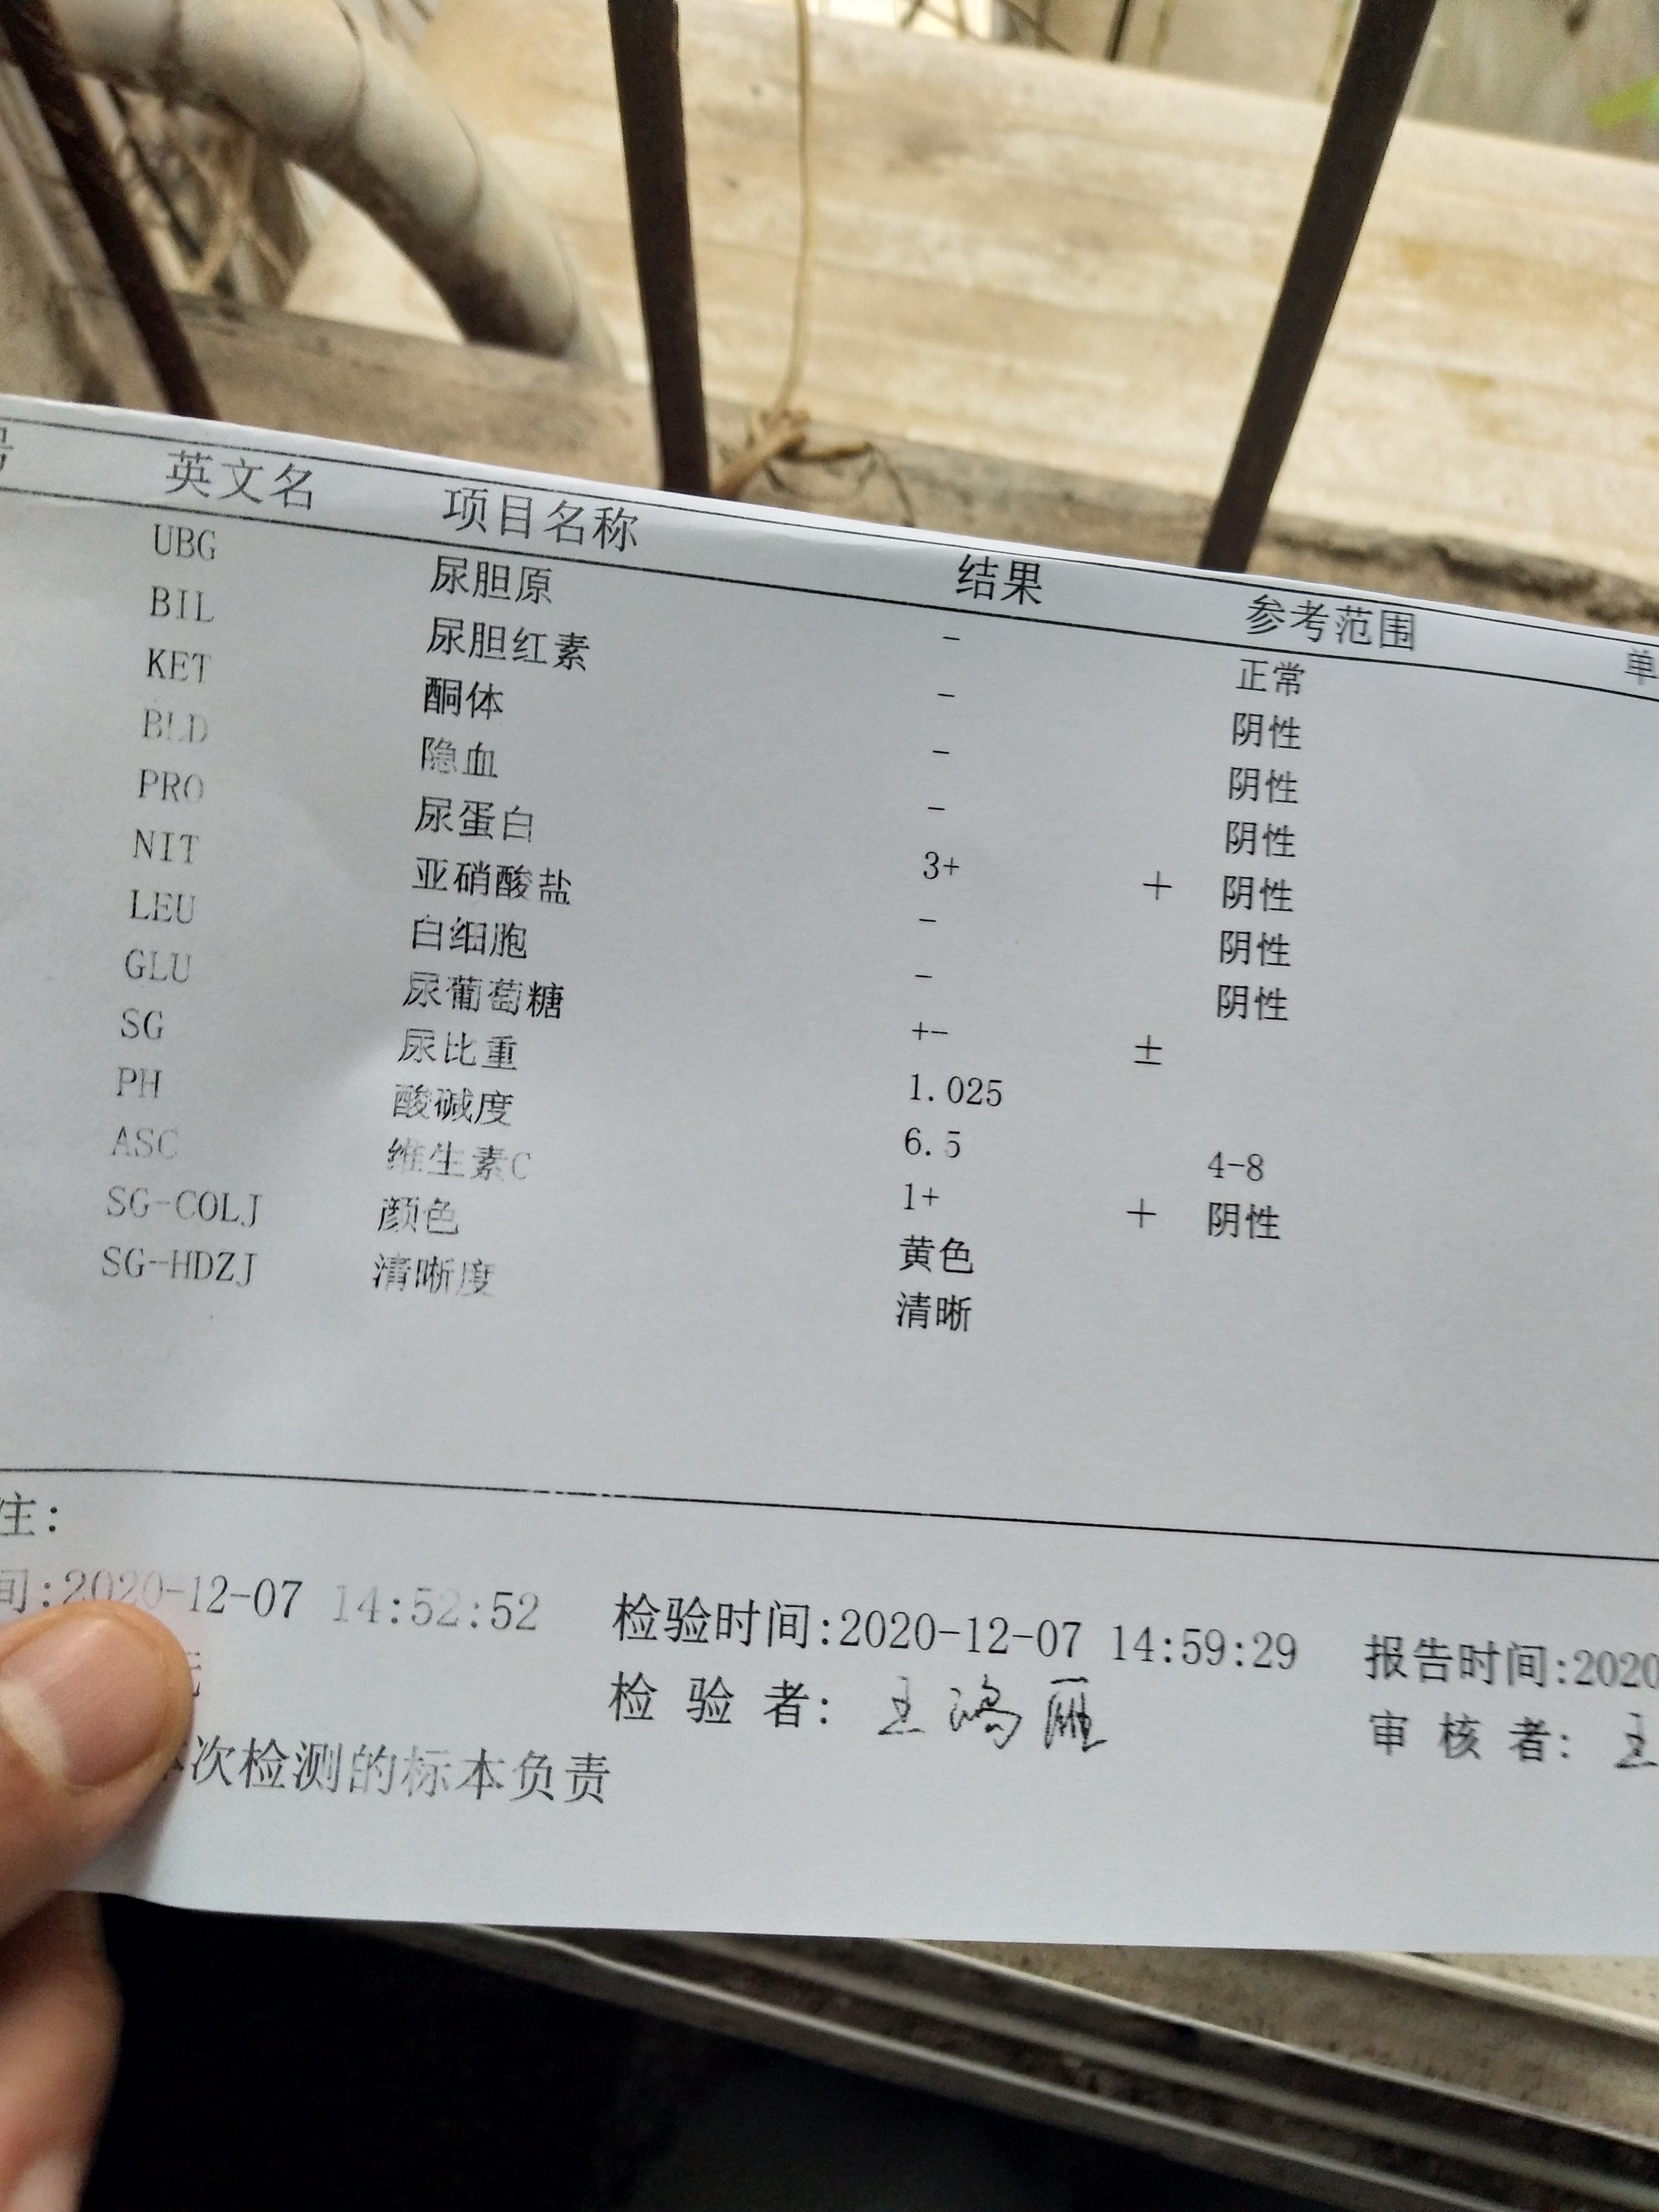 号 英文名 项目名称 结果 参考范围 单
UBG 尿胆原 - 正常
BIL 尿胆红素 - 阴性
KET 酮体 - 阴性
BLD 隐血 - 阴性
PRO 尿蛋白 3+ + 阴性
NIT 亚硝酸盐 - 阴性
LEU 白细胞 - 阴性
GLU 尿葡萄糖 +- ±
SG 尿比重 1.025
PH 酸碱度 6.5 4-8
ASC 维生素C 1+ + 阴性
SG-COLJ 颜色 黄色
SG-HDZJ 清晰度 清晰
注:
间:2020-12-07 14:52:52 检验时间:2020-12-07 14:59:29 报告时间:2020
检 验 者: 王鸿雁 审 核 者: 王
次检测的标本负责